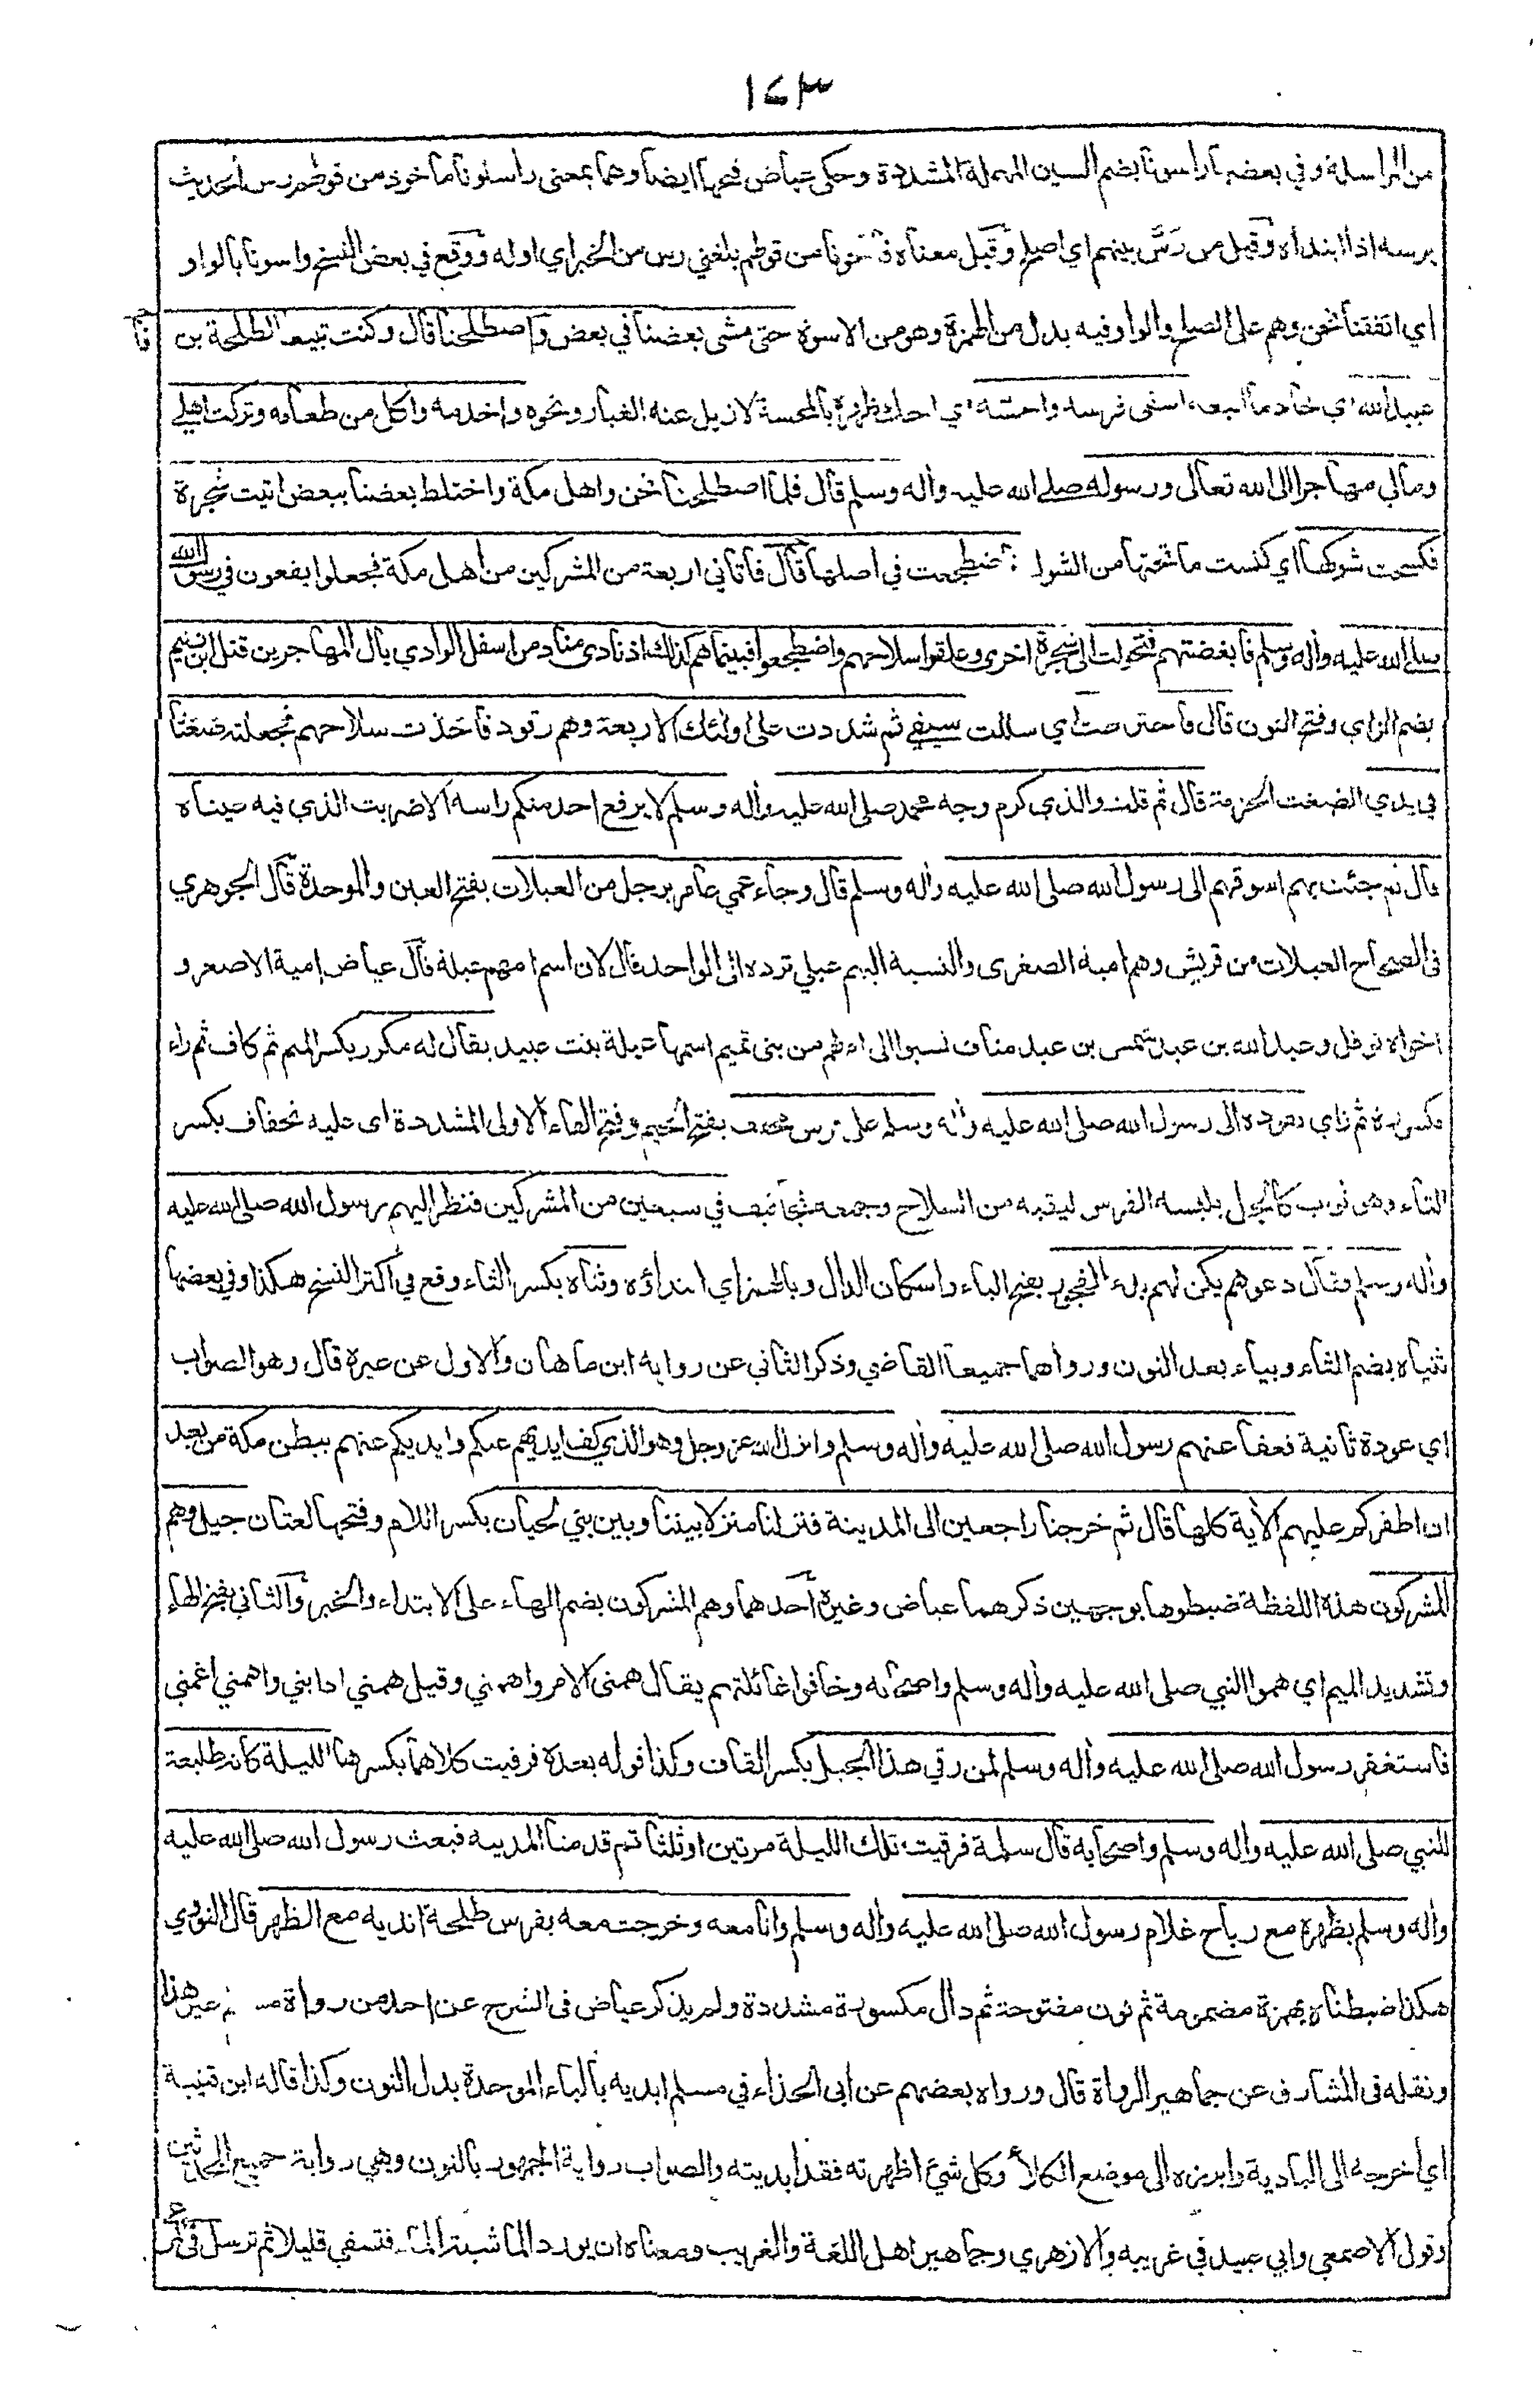 ١٤٣
من المراسلة وفي بعضها راسونا بضم السين المهملة المشددة وحكى عياض فتحها ايضا وهما بمعنى راسلونا ماخوذ من قولهم رس الحديث
يرسه اذا ابتدأه وقيل من رَسَّ بينهم اي اصلح وقيل معناه فاتحونا من قولهم بلغني رس من الخبر اي اوله ووقع في بعض النسخ واسونا بالواو
اي اتفقنا نحن وهم على الصلح والواو فيه بدل من الهمزة وهو من الاسوة حتى مشى بعضنا في بعض واصطلحنا قال وكنت تبيعا لطلحة بن
عبيد الله اي خادما اتبعه اسقي فرسه واحسّه اي احك ظهره بالمحسة لازيل عنه الغبار ونحوه واخدمه واكل من طعامه وتركت اهلي
ومالي مهاجرا الى الله تعالى ورسوله صلى الله عليه وأله وسلم قال فلما اصطلحنا نحن واهل مكة واختلط بعضنا ببعض اتيت شجرة
فكسحت شوكها اي كنست ما تحتها من الشوك فاضطجعت في اصلها قال فأتاني اربعة من المشركين من اهل مكة فجعلوا يقعون في رسول الله
صلى الله عليه وأله وسلم فأبغضتهم فتحولت الى شجرة اخرى وعلقوا سلاحهم واضطجعوا فبينما هم كذلك اذ نادى مناد من اسفل الوادي يآل المهاجرين قتل ابن زنيم
بضم الزاي وفتح النون قال فاخترطت اي سللت سيفي ثم شددت على اولئك الاربعة وهم رقود فأخذت سلاحهم فجعلته ضغثا
في يدي الضغث الحزمة قال ثم قلت والذي كرم وجه محمد صلى الله عليه وأله وسلم لا يرفع احد منكم راسه الا ضربت الذي فيه عيناه
قال ثم جئت بهم اسوقهم الى رسول الله صلى الله عليه وأله وسلم قال وجاء عمي عامر برجل من العبلات بفتح العين والموحدة قال الجوهري
في الصحاح العبلات من قريش وهم امية الصغرى والنسبة اليهم عبلي ترده الى الواحد قال لان اسم امهم عبلة قال عياض امية الاصغر و
اخواه نوفل وعبد الله بن عبد شمس بن عبد مناف نسبوا الى ام لهم من بني تميم اسمها عبلة بنت عبيد يقال له مكرز بكسر الميم ثم كاف ثم راء
مكسورة ثم زاي يقوده الى رسول الله صلى الله عليه وأله وسلم على فرس مجفف بفتح الجيم وفتح الفاء الاولى المشددة اي عليه تجفاف بكسر
التاء وهو ثوب كالجل يلبسه الفرس ليقيه من السلاح وجمعه تجافيف في سبعين من المشركين فنظر اليهم رسول الله صلى الله عليه
وأله وسلم فقال دعوهم يكن لهم بدء الفجور بفتح الباء واسكان الدال وبالهمز اي ابتداؤه وثناه بكسر الثاء وقع في اكثر النسخ هكذا وفي بعضها
ثنياه بضم الثاء وبياء بعد النون ورواهما جميعا القاضي وذكر الثاني عن رواية ابن ماهان والاول عن غيره قال وهو الصواب
اي عودة ثانية فعفا عنهم رسول الله صلى الله عليه وأله وسلم وانزل الله عز وجل وهو الذي كف ايديهم عنكم وايديكم عنهم ببطن مكة من بعد
ان اظفركم عليهم الأية كلها قال ثم خرجنا راجعين الى المدينة فنزلنا منزلا بيننا وبين بني لحيان بكسر اللام وفتحها لغتان جبل وهم
المشركون هذه اللفظة ضبطوها بوجهين ذكرهما عياض وغيره أحدهما وهم المشركون بضم الهاء على الابتداء والخبر والثاني بفتح الهاء
وتشديد الميم اي هموا النبي صلى الله عليه وأله وسلم واصحابه وخافوا غائلتهم يقال همني الامر واهمني وقيل همني اذابني واهمني اغمني
فاستغفر رسول الله صلى الله عليه وأله وسلم لمن رقي هذا الجبل بكسر القاف وكذا قوله بعده فرقيت كلاهما بكسرها الليلة كأنه طليعة
للنبي صلى الله عليه وأله وسلم واصحابه قال سلمة فرقيت تلك الليلة مرتين او ثلثا ثم قدمنا المدينة فبعث رسول الله صلى الله عليه
وأله وسلم بظهره مع رباح غلام رسول الله صلى الله عليه وأله وسلم وانا معه وخرجت معه بفرس طلحة انديه مع الظهر قال النووي
هكذا ضبطناه بهمزة مضمومة ثم نون مفتوحة ثم دال مكسورة مشددة ولم يذكر عياض في الشرح عن احد من رواة مسلم غير هذا
ونقله في المشارق عن جماهير الرواة قال ورواه بعضهم عن أبي الحذاء في مسلم ابديه بالباء الموحدة بدل النون وكذا قاله ابن قتيبة
اي اخرجه الى البادية وابرزه الى موضع الكلأ وكل شيء اظهرته فقد ابديته والصواب رواية الجمهور بالنون وهي رواية جميع المحدثين
وقول الاصمعي وابي عبيد في غريبه والازهري وجماهير اهل اللغة والغريب ومعناه ان يورد الماشية الماء فتسقى قليلا ثم ترسل في المرعى